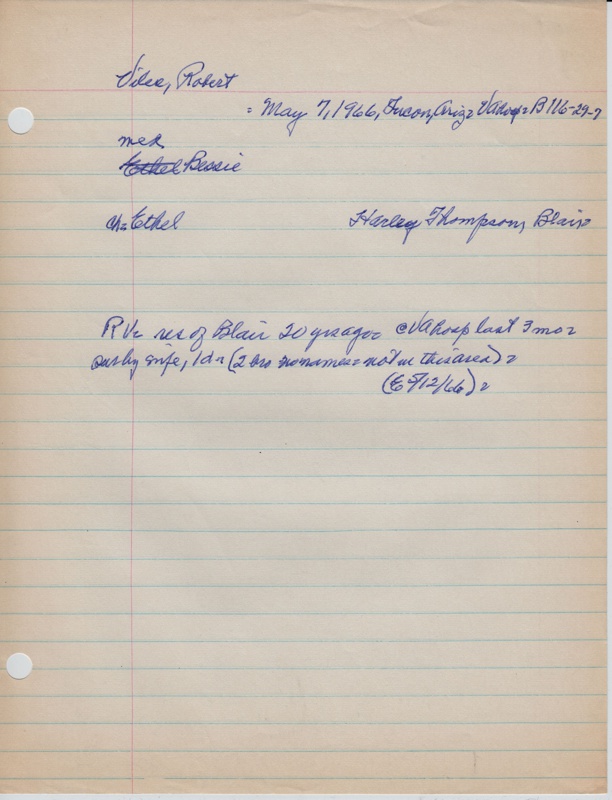 Robert
= May 7, 1966, Tucson, Ariz= VAhosp= B 116-29-7
med
Ethel Bessie
ch= Ethel Harley Thompson, Blair=
RV= res of Blair 20 yrs ago= @VAhosp last 3 mo=
sur by wife, 1d= (2 bro no names= not in this area)=
(E 5/12/66)=